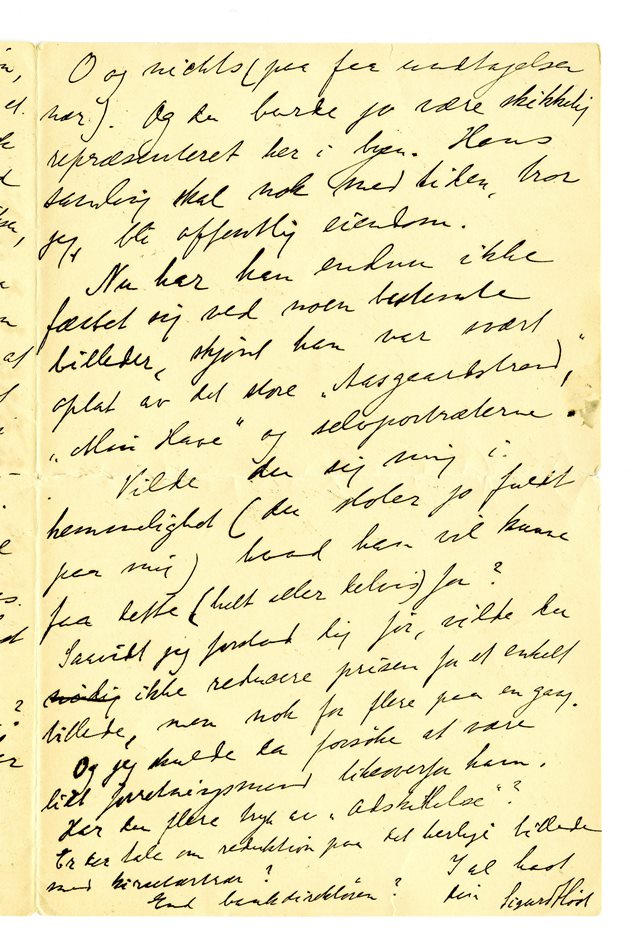 O og nichts (paa faa undtagelser
nær). Og du burde jo være skikkelig
repræsenteret her i byen. Hans
samling skal nok med tiden, tror
jeg, bli offentlig eiendom.
Nu har han endnu ikke
fæstet sig ved noen bestemte
billeder, skjønt han var svært
optat av det store „Aasgaardstrand",
„Min Have" og selvportræterne.
Vilde du sig mig i
hemmelighet (du stoler jo fuldt
paa mig) hvad han vil kunne
faa dette (helt eller delvis) for?
Saavidt jeg forstod dig før, vilde du
nødig ikke reducere prisen for et enkelt
billede, men nok for flere paa en gang.
Og jeg skulde da forsøke at være
litt forretningsmand likeoverfor ham.
Har du flere tryk av „Adskillelse"?
Er der tale om reduktion paa det herlige billede
med kirsebærtrær? I al hast
End bankdirektøren? din Sigurd Høst